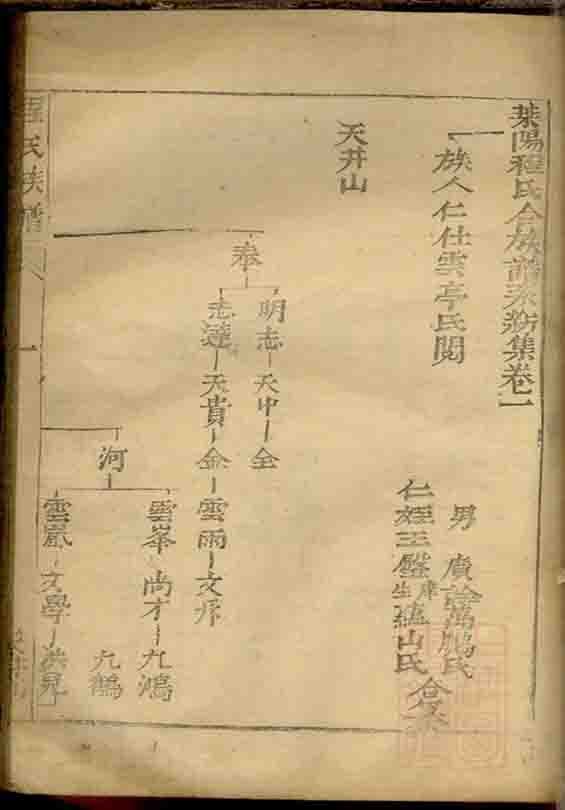 滎陽程氏合族譜系 集卷一
族人仁仕雲亭氏閱
男 廣 萬鵬氏
仁 玉 庠生蘊山氏 仝
天井山
奉
明志 天中 全
志達 天貴 金 雲雨 文炳
河
雲峯 尚才 九鴻
九鶴
雲巖 文學 洪見
程氏族譜 一